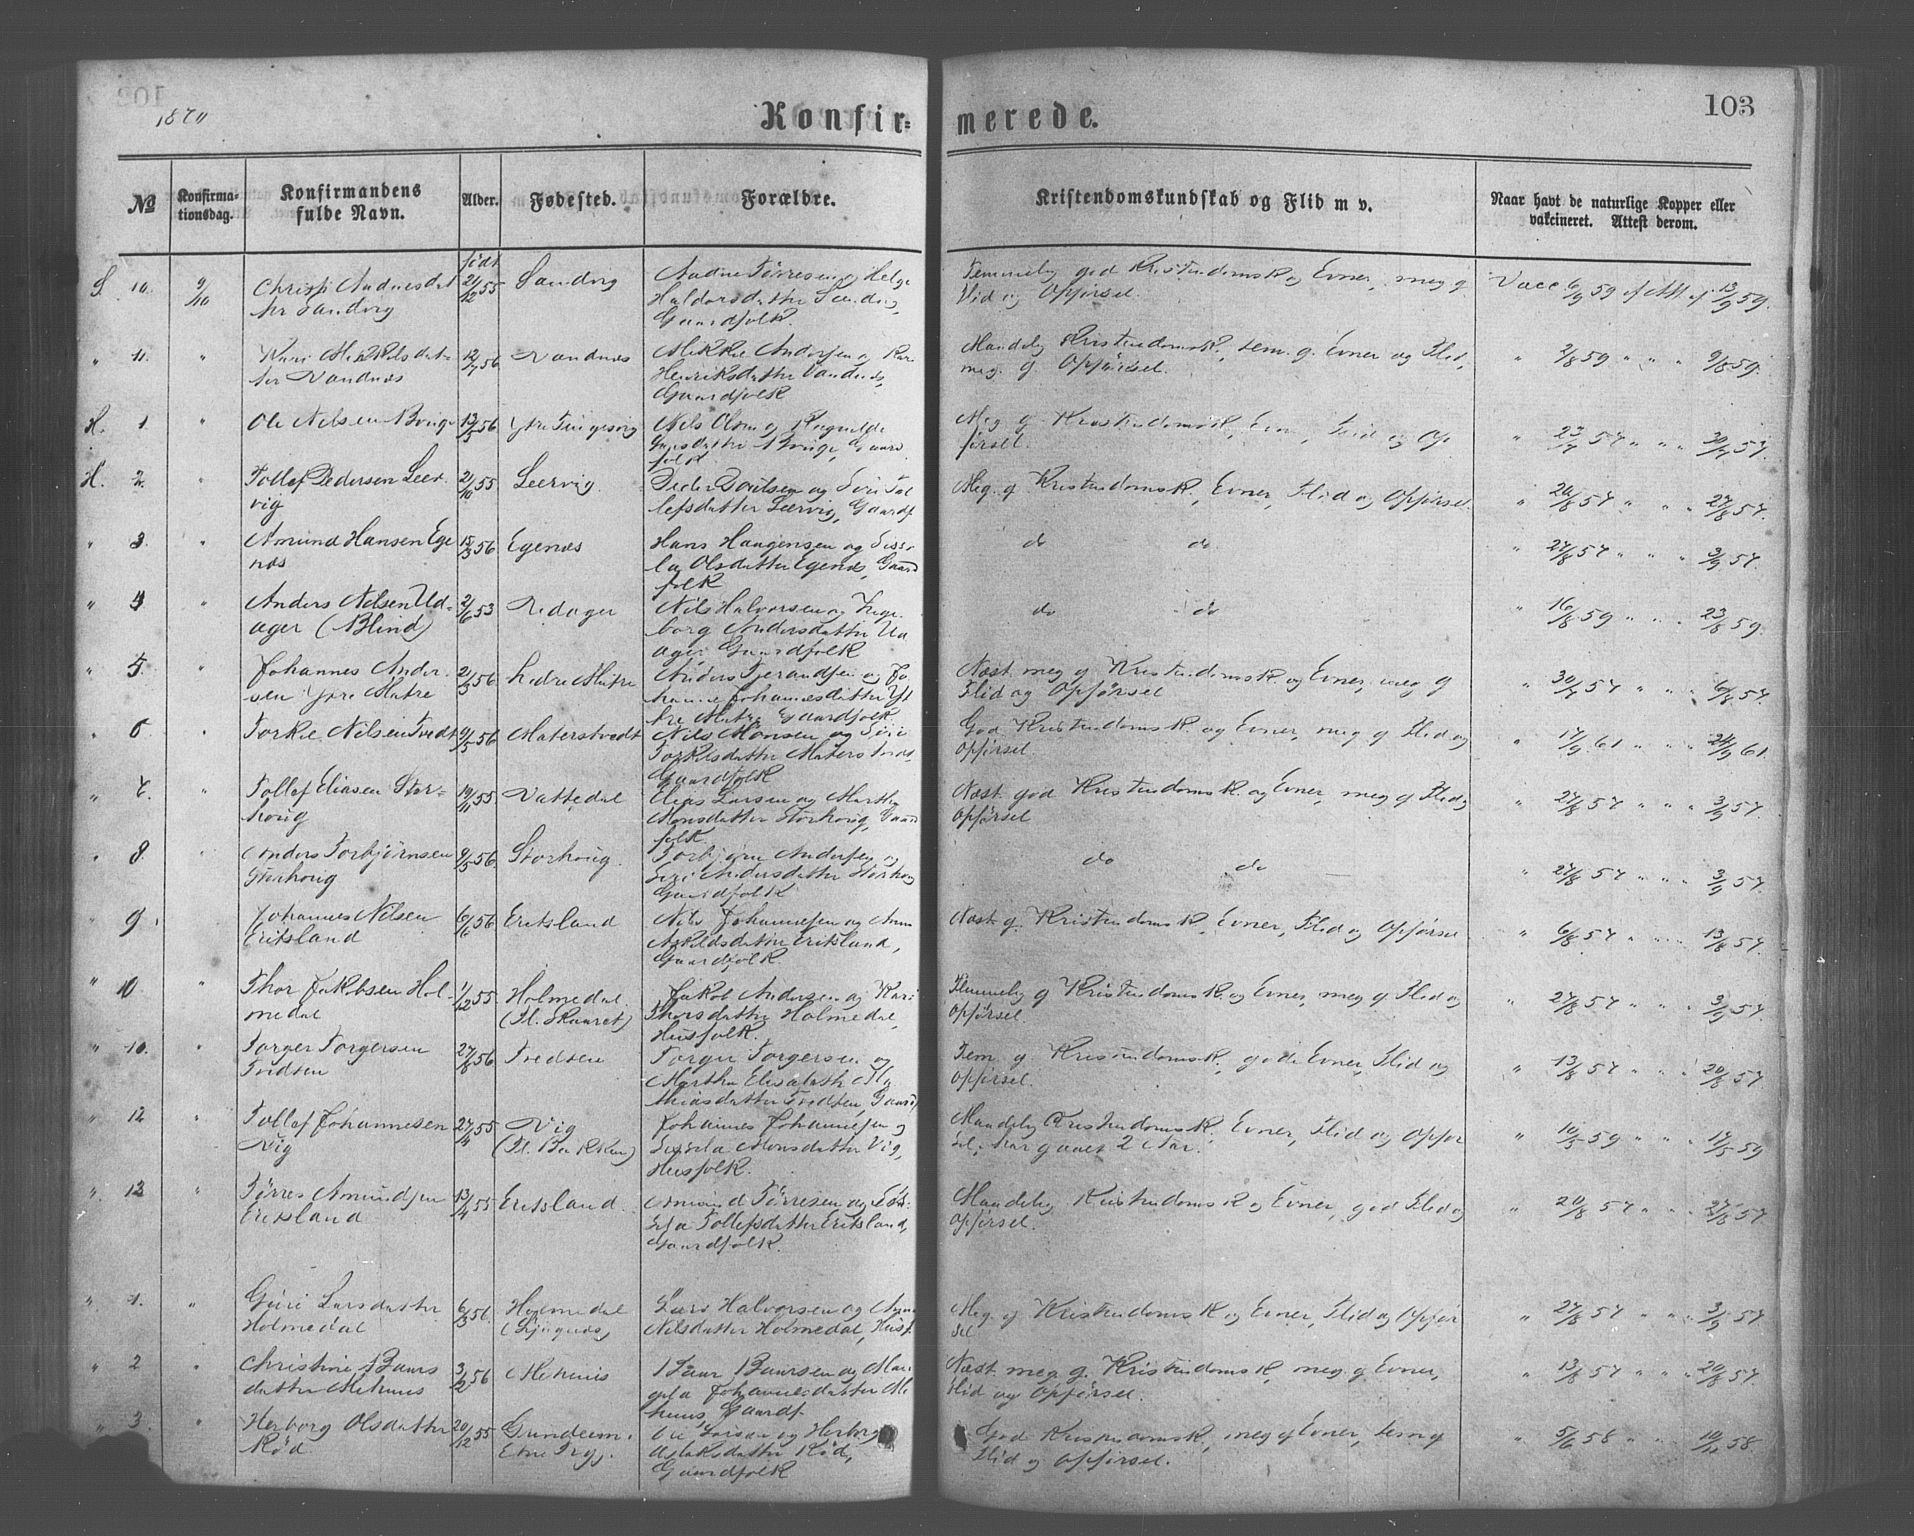 1870
Konfir= merede.
103
No
Konfirma-
tionsdag.
Konfirmandens
fulde Navn.
Alder.
Fødested.
Forældre.
Kristendomskundskab og Flid m v.
Naar havt de naturlige Kopper eller
vakcineret. Attest derom.
født
S. 10. 9/10 Christi Andnesdat
ter Sandvig
21/12 55 Sandvig
Andne Tørresen og Helge
Haldorsdatter Sandvig,
Gaardfolk.
Temmelig god Kristendomsk og Evner, meg g
Flid og Opførsel.
Vacc 6/9 59 Att af 13/9 59.
" 11. " Kari Mikkelsdat-
ter Vandnes
12/7 56 Vandnes
Mikkel Andersen og Kari
Henriksdatter Vandnes,
Gaardfolk
Maadelig Kristendomsk., tem. g. Evner og Flid,
meg. g. Opførsel.
" 2/8 59 " " " 9/8 59.
H. 1 " Ole Nilsen
13/5 56 Ytre
Nils Olsen og Ragnilde
Gaard
folk
Meg g Kristendomsk, Evn., Flid og Op
førsel.
" 23/7 57 " " " 30/7 57.
H. 2. " Tollef Pedersen Leer-
vig
21/10 55 Leervig.
Peder og Siri Tol
lefsdatter Leervig, Gaardf
Meg. g. Kristendomsk, Evner, Flid og Opførsel.
" 20/8 57 " " " 27/8 57.
" 3. " Amund Hansen Ege
nes
15/3 56 Egenes
Hans Haagensen og Sisse
la Olsdatter Egenes, Gaard
folk
do do
" 27/8 57 " " " 3/9 57.
" 4 " Anders Nilsen Ud-
ager (Blind)
2/6 53 Udager
Nils Halvorsen og Inge
borg Andersdatter Ud
ager Gaardfolk
do do
" 16/8 59 " " " 23/8 59.
" 5. " Johannes Ander-
sen Ytre Matre
21/3 56 Indre Matre
Anders Tjerandsen og Jo
hanne Johannesdatter Yt
tre Matre Gaardfolk
Næst meg g Kristendomsk og Evner, meg g
Flid og Opførsel
" 30/7 57 " " " 6/8 57.
" 6 " Torkel Nilsen Tvedt
9/5 56 Materstvedt
Nils Monsen og Siri
Torkelsdatter Materstvedt,
Gaardfolk
God Kristendomsk og Evner, meg g Flid og
Opførsel.
" 17/9 61 " " " 24/9 61.
" 7. " Tollef Eliasen Stor-
houg
19/11 55 Vattedal
Elias Larsen og Martha
Monsdatter Storhoug, Gaard
folk
Næst god Kristendomsk. og Evner, meg g Flid og
Opførsel
" 27/8 57 " " " 3/9 57.
" 8. " Anders Torbjørnsen
Storhoug
9/5 56. Storhoug.
Torbjørn Andersen og
Siri Andersdatter Storhoug
Gaardfolk
do do
" 27/8 57 " " " 3/9 57.
" 9. " Johannes Nilsen
Eritsland
6/6 56 Eritsland
Nils Johannesen og Anna
Askildsdatter Eritsland,
Gaardfolk.
Næst g. Kristendomsk, Evner, Flid og Opførsel
" 6/8 57 " " " 13/8 57.
" 10 " Thor Jakobsen Hol-
medal
1/12 55 Holmedal
(Pl. Skaaret)
Jakob Andersen og Kari
Thorsdatter Holmedal,
Husfolk.
Temmelig g Kristendomsk og Evner, meg g Flid og
Opførsel.
" 27/8 57 " " " 3/9 57.
" 10. " Torger Torgersen
Tvedten
27/8 56 Tvedten
Torger Torgersen og
Martha Elisabeth Ma
thiasdatter Tvedten, Gaardf
Tem g. Kristendomsk, gode Evner, Flid og
Opførsel.
" 13/8 57 " " " 20/8 57.
" 12 " Tollef Johannesen
Vig
27/4 55 Vig
(Pl. Bakken)
Johannes Johannesen og
Sissela Monsdatter Vig,
Husfolk.
Maadelig Kristendomsk, Evner, Flid og Opfør
sel, har gaaet 2 Aar.
" 10/5 59 " " " 17/5 59
" 13 " Tørres Amundsen
Eritsland
13/4 55 Eritsland.
Amund Tørresen og Sis-
sela Tollefsdatter Eritsland,
Gaardfolk.
Maadelig Kristendomsk og Evner, god Flid og
Opførsel.
" 20/8 57 " " " 27/8 57
" 1. " Guri Larsdatter
Holmedal
6/3 56 Holmedal
Lars Halvorsen og Anna
Nilsdatter Holmedal, Husf.
Meg. g Kristendomsk og Evner, Flid og Opfør
sel.
" 27/8 57 " " " 3/9 57
" 2 " Christine Baars
datter Mehuus
3/2 56 Mehuus
Baar Baarsen og Mar
gela Johannesdatter Me
huus, Gaardf.
Næst meg. g. Kristendomsk, meg. g Evner,
Flid og Opførsel.
" 13/8 57 " " " 20/8 57
" 3. " Herborg Olsdatter
Rød
20/12 55 Grindeim.
Etne
Ole Larsen og Herborg
Aslaksdatter Rød,
Gaardfolk
God Kristendomsk, meg g Evner, tem g
Flid og Opførsel.
" 5/6 58 " " 58.